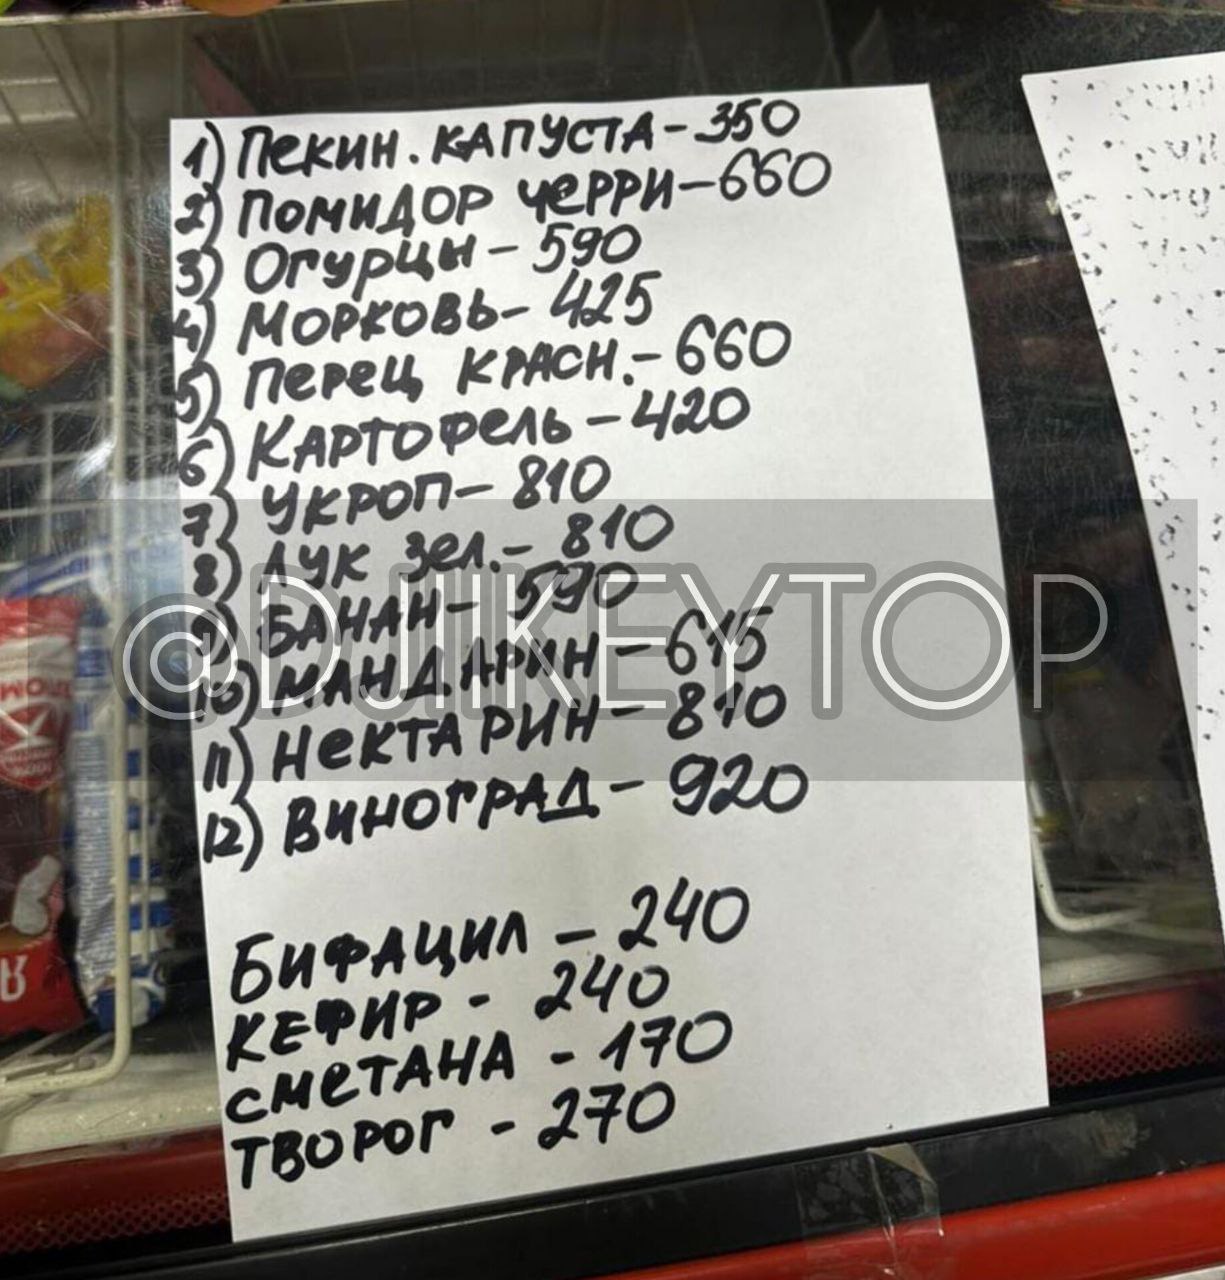 1) Пекин. капуста - 350
2) Помидор черри - 660
3) Огурцы - 590
4) Морковь - 425
5) Перец красн. - 660
6) Картофель - 420
7) Укроп - 810
8) Лук зел. - 810
9) Банан - 590
@DJIKEYTOP
10) Мандарин - 615
11) Нектарин - 810
12) Виноград - 920
Бифацил - 240
Кефир - 240
Сметана - 170
Творог - 270